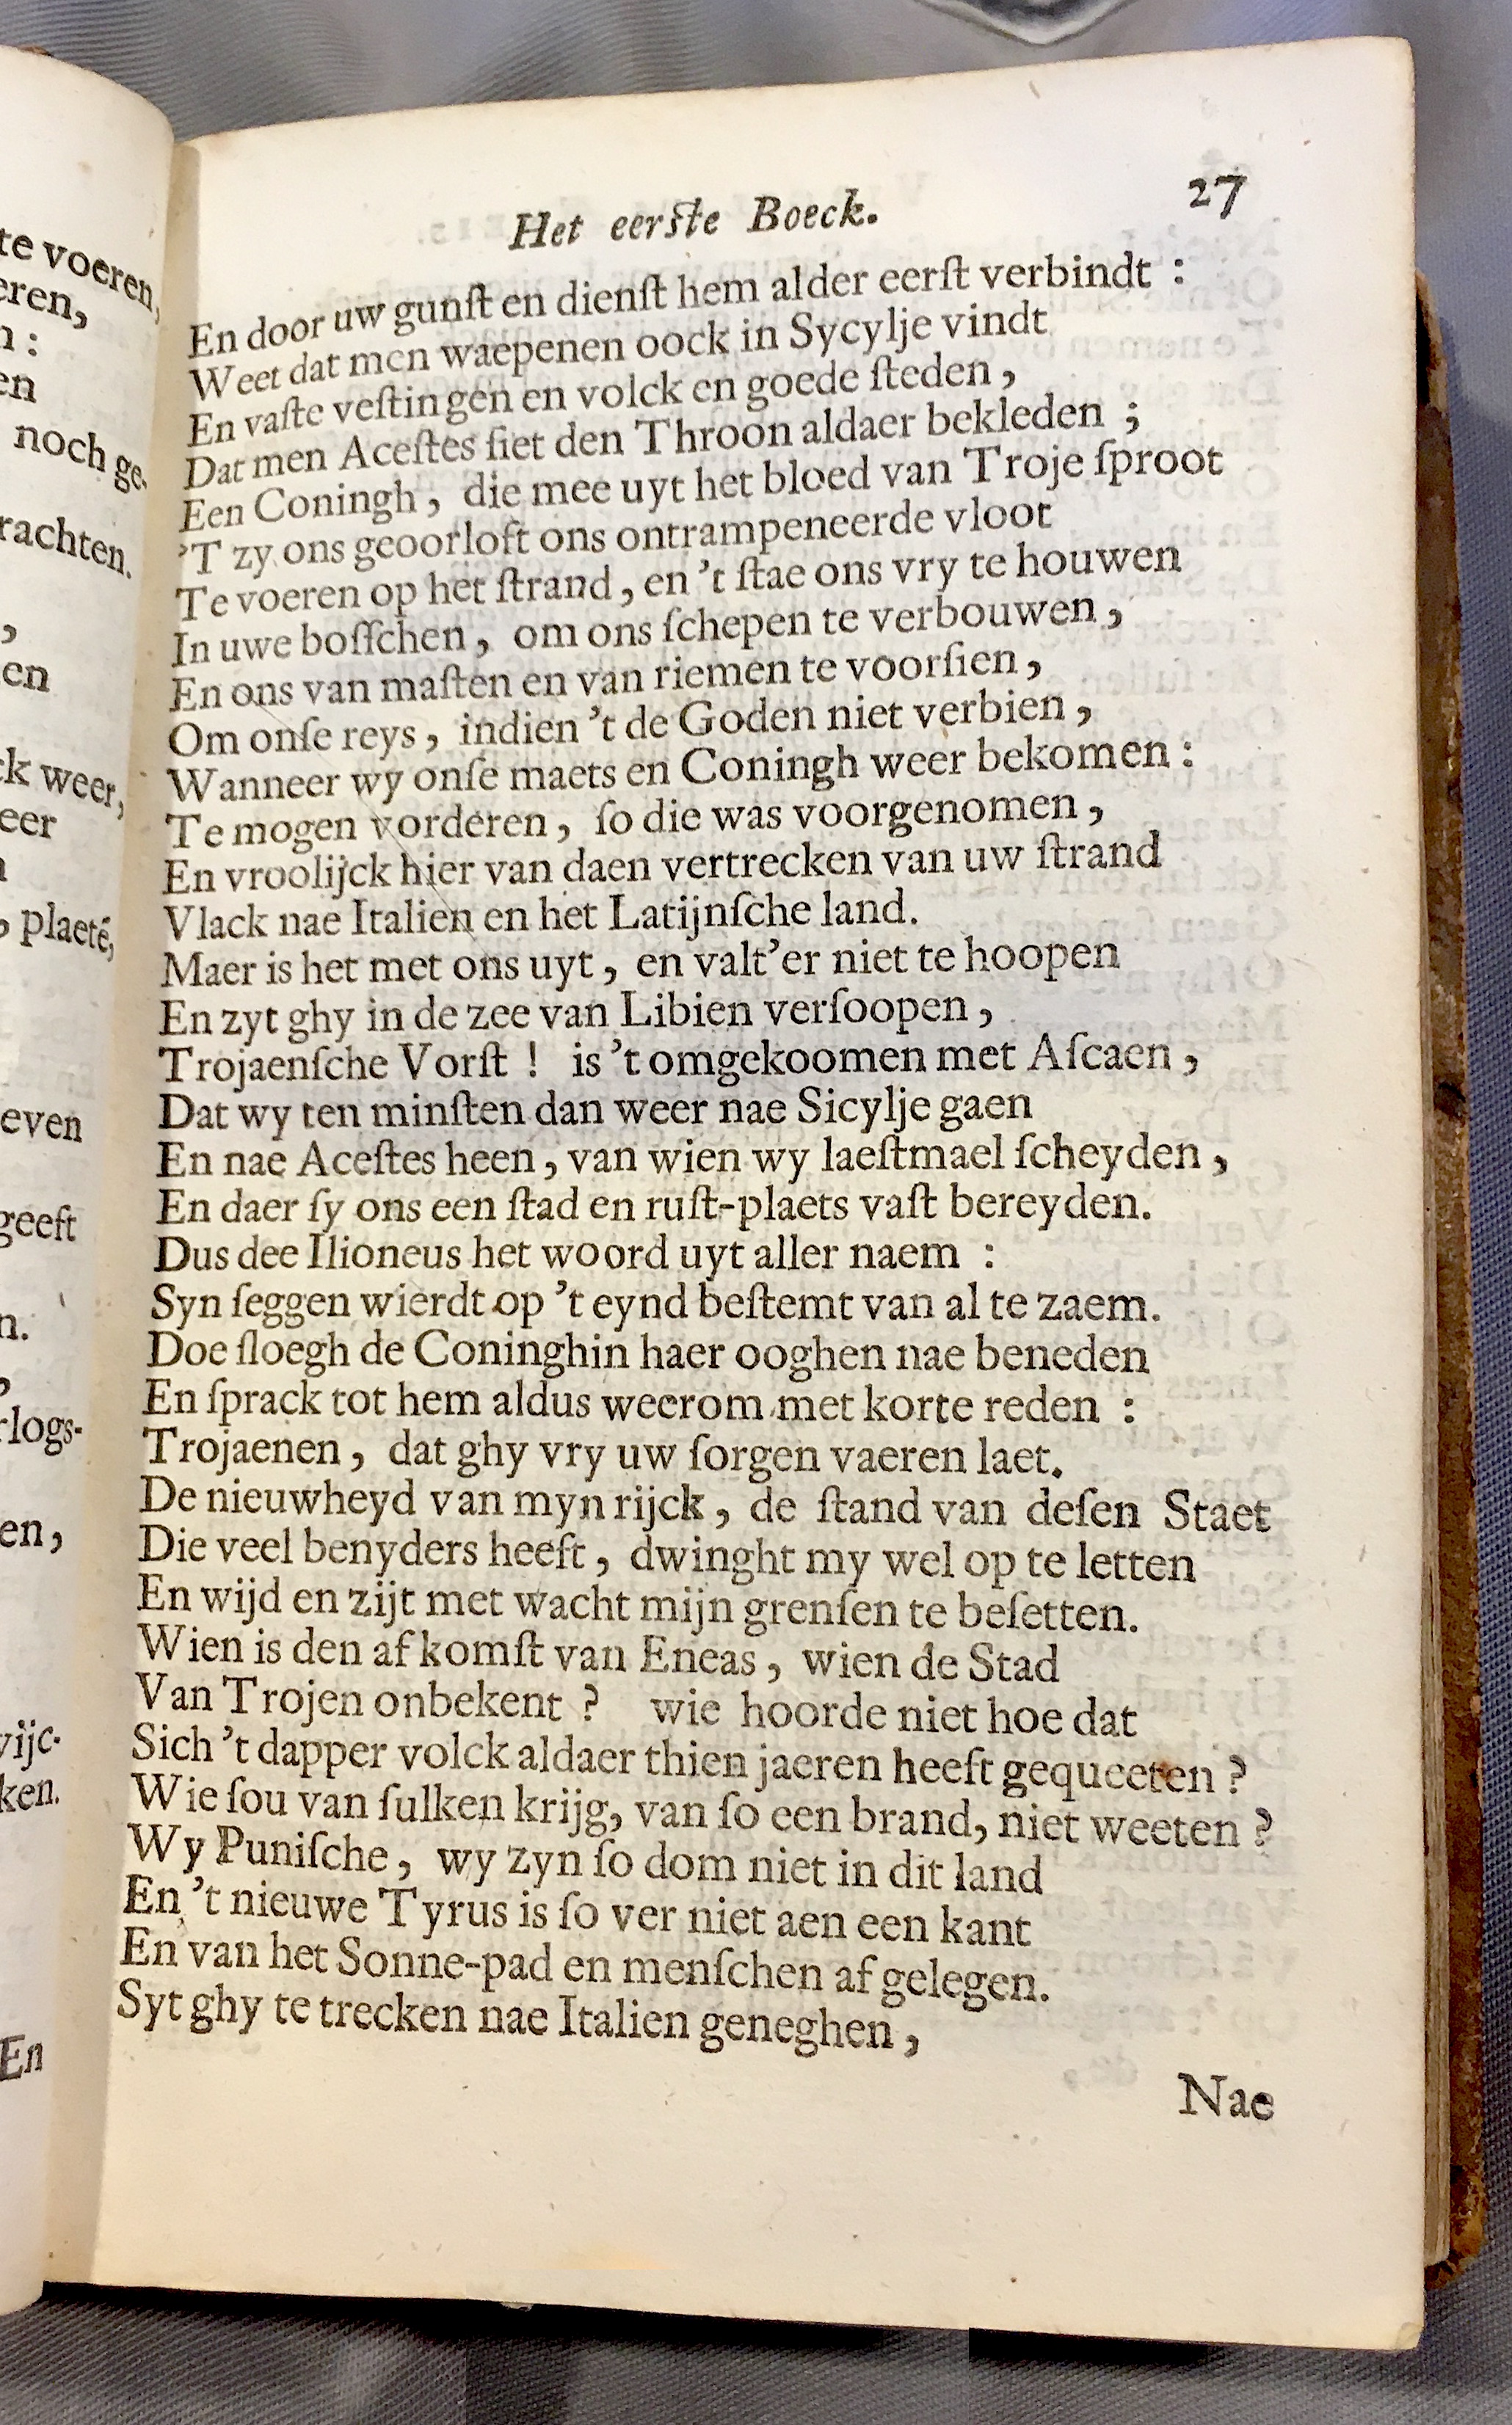 te voeren,
eren,
n:
en
noch ge-
rachten.
,
en
ck weer,
eer
plaeté,
even
geeft
n.
,
rlogs-
en,
vijc-
ken.
En
Het eerſte Boeck.
27
En door uw gunſt en dienſt hem alder eerſt verbindt :
Weet dat men waepenen oock in Sycylje vindt
En vaſte veſtingen en volck en goede ſteden,
Dat men Aceſtes ſiet den Throon aldaer bekleden ;
Een Coningh, die mee uyt het bloed van Troje ſproot
'T zy ons geoorloft ons ontrampeneerde vloot
Te voeren op het ſtrand, en 't ſtae ons vry te houwen
In uwe boſſchen, om ons ſchepen te verbouwen,
En ons van maſten en van riemen te voorſien,
Om onſe reys, indien 't de Goden niet verbien,
Wanneer wy onſe maets en Coningh weer bekomen :
Te mogen vorderen, ſo die was voorgenomen,
En vroolijck hier van daen vertrecken van uw ſtrand
Vlack nae Italien en het Latijnſche land.
Maer is het met ons uyt, en valt'er niet te hoopen
En zyt ghy in de zee van Libien verſoopen,
Trojaenſche Vorſt ! is 't omgekoomen met Aſcaen,
Dat wy ten minſten dan weer nae Sicylje gaen
En nae Aceſtes heen, van wien wy laeſtmael ſcheyden,
En daer ſy ons een ſtad en ruſt-plaets vaſt bereyden.
Dus dee Ilioneus het woord uyt aller naem :
Syn ſeggen wierdt op 't eynd beſtemt van al te zaem.
Doe ſloegh de Coninghin haer ooghen nae beneden
En ſprack tot hem aldus weerom met korte reden :
Trojaenen, dat ghy vry uw ſorgen vaeren laet.
De nieuwheyd van myn rijck, de ſtand van deſen Staet
Die veel benyders heeft, dwinght my wel op te letten
En wijd en zijt met wacht mijn grenſen te beſetten.
Wien is den afkomſt van Eneas, wien de Stad
Van Trojen onbekent ? wie hoorde niet hoe dat
Sich 't dapper volck aldaer thien jaeren heeft gequeeten ?
Wie ſou van ſulken krijg, van ſo een brand, niet weeten ?
Wy Puniſche, wy zyn ſo dom niet in dit land
En 't nieuwe Tyrus is ſo ver niet aen een kant
En van het Sonne-pad en menſchen afgelegen.
Syt ghy te trecken nae Italien geneghen,
Nae